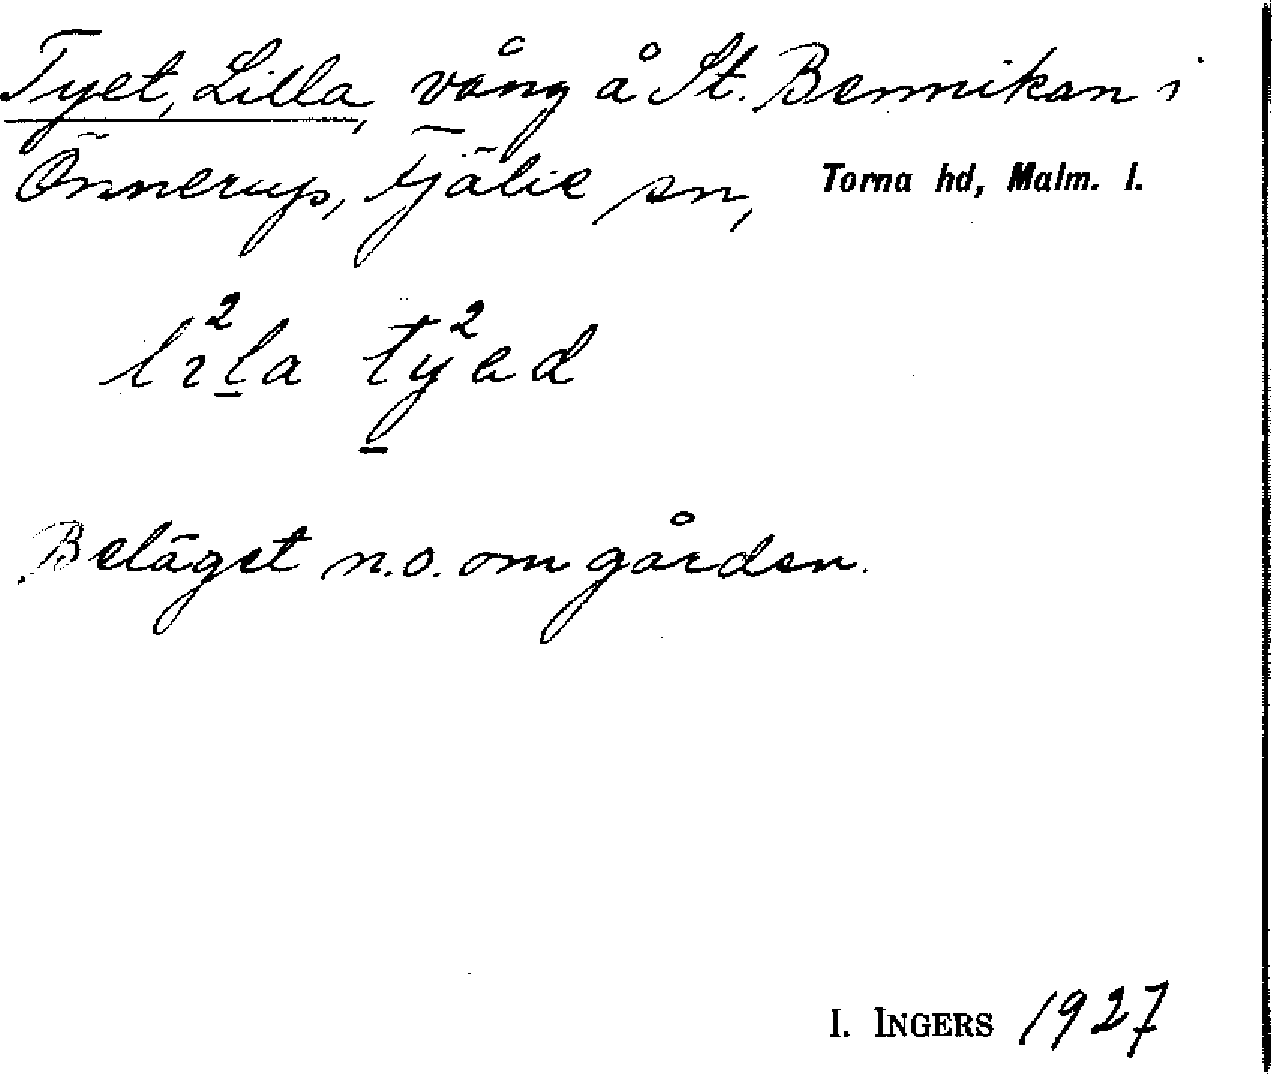 Tyet, Lilla, vång å St. Bennikan i
Önnerup, Fjälie sn, Torna hd, Malm. l.
lı²la ty²ad
Beläget n.o. om gården.
I. INGERS 1927